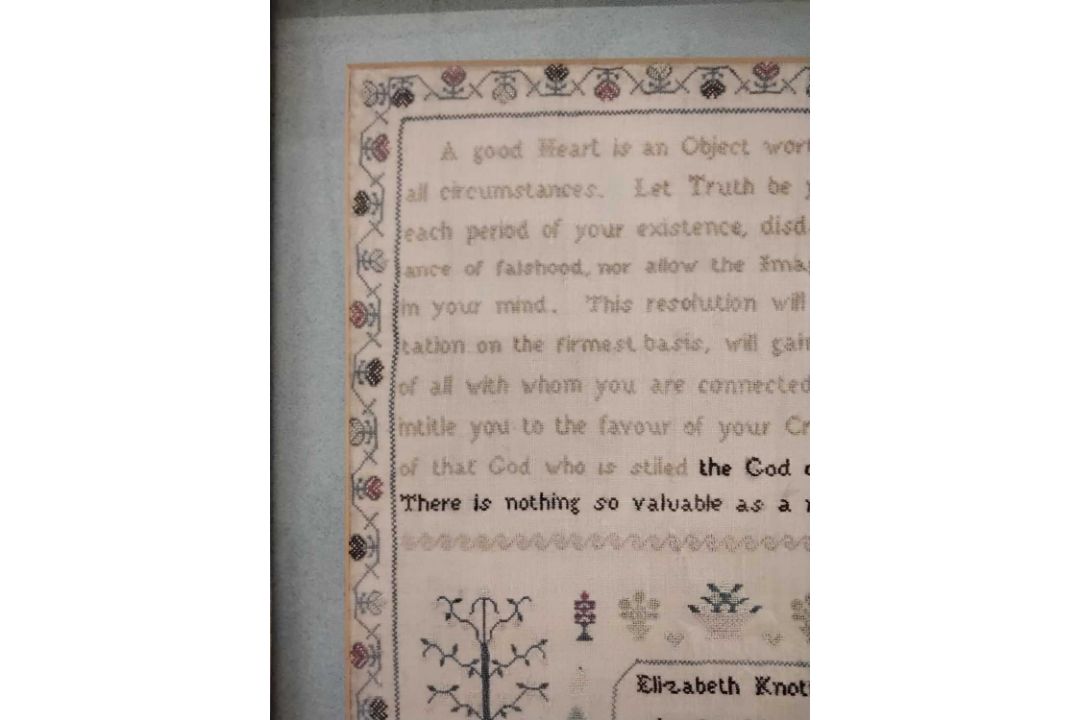 A good Heart is an Object
all circumstances. Let Truth be
each period of your existence,
ance of falshood, nor allow the
in your mind. This resolution will
tation on the firmest basis, will
of all with whom you are connected
intitle you to the favour of your
of that God who is stiled the God
There is nothing so valuable as a
Elizabeth